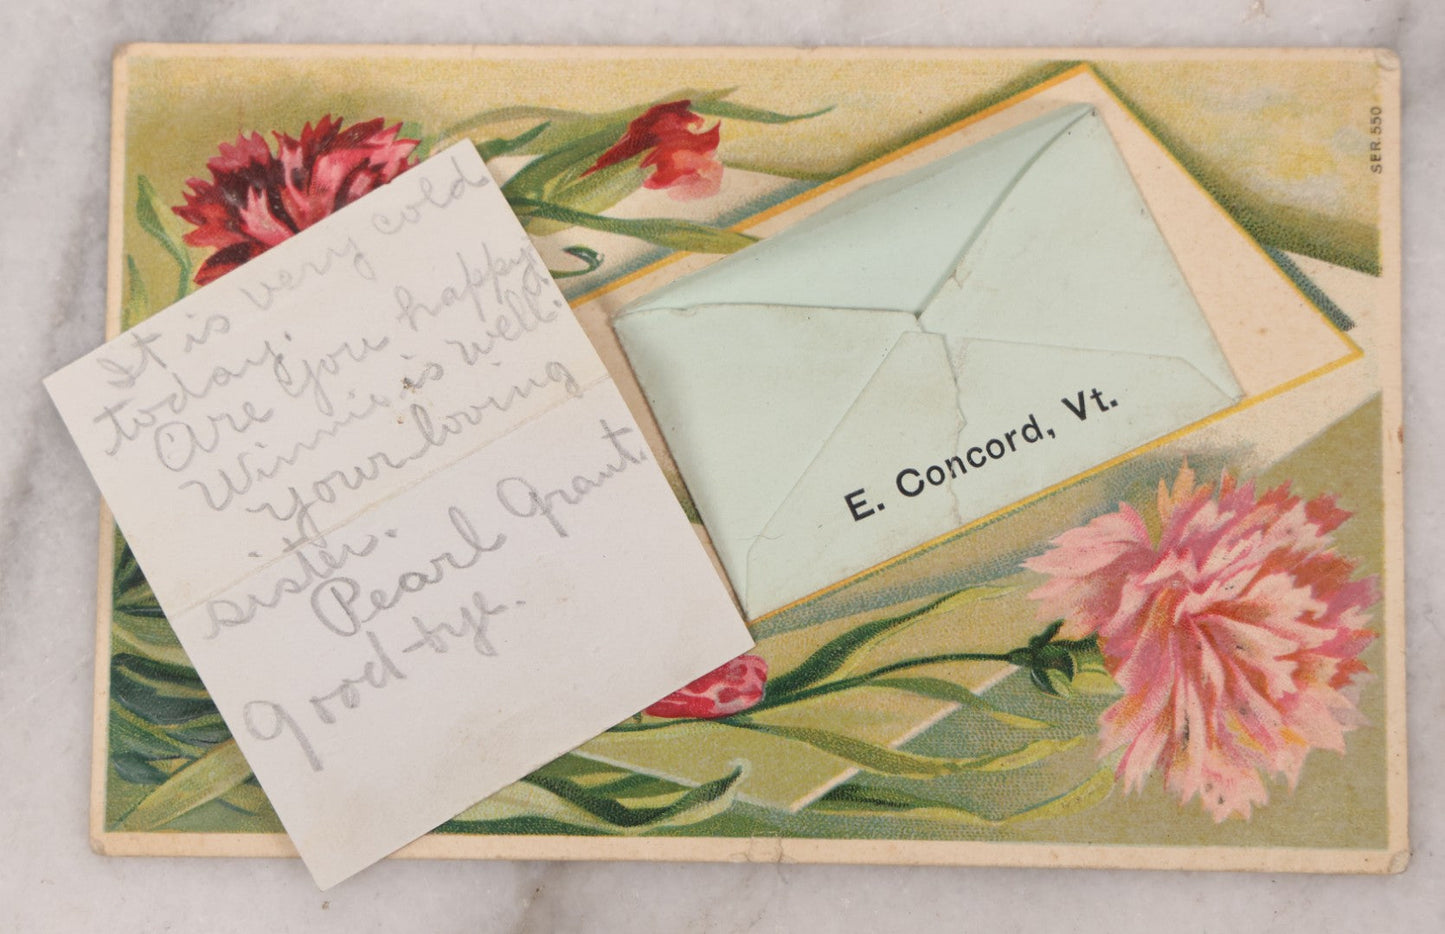 It is very cold
today.
Are you happy?
Winnie is well.
Your loving
sister.
Pearl Grant.
Good-bye.
E. Concord, Vt.
SER. 550